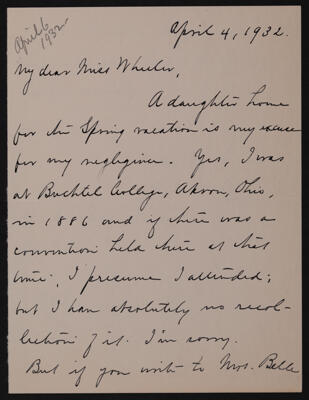 April 6
1932
April 4, 1932.
My dear Miss Wheeler,
A daughter home
for the Spring vacation is my excuse
for my negligence. Yes, I was
at Buchtel College, Akron, Ohio,
in 1886 and if there was a
convention held there at that
time, I presume I attended;
but I have absolutely no recol-
lection of it. I'm sorry.
But if you write to Mrs. Belle